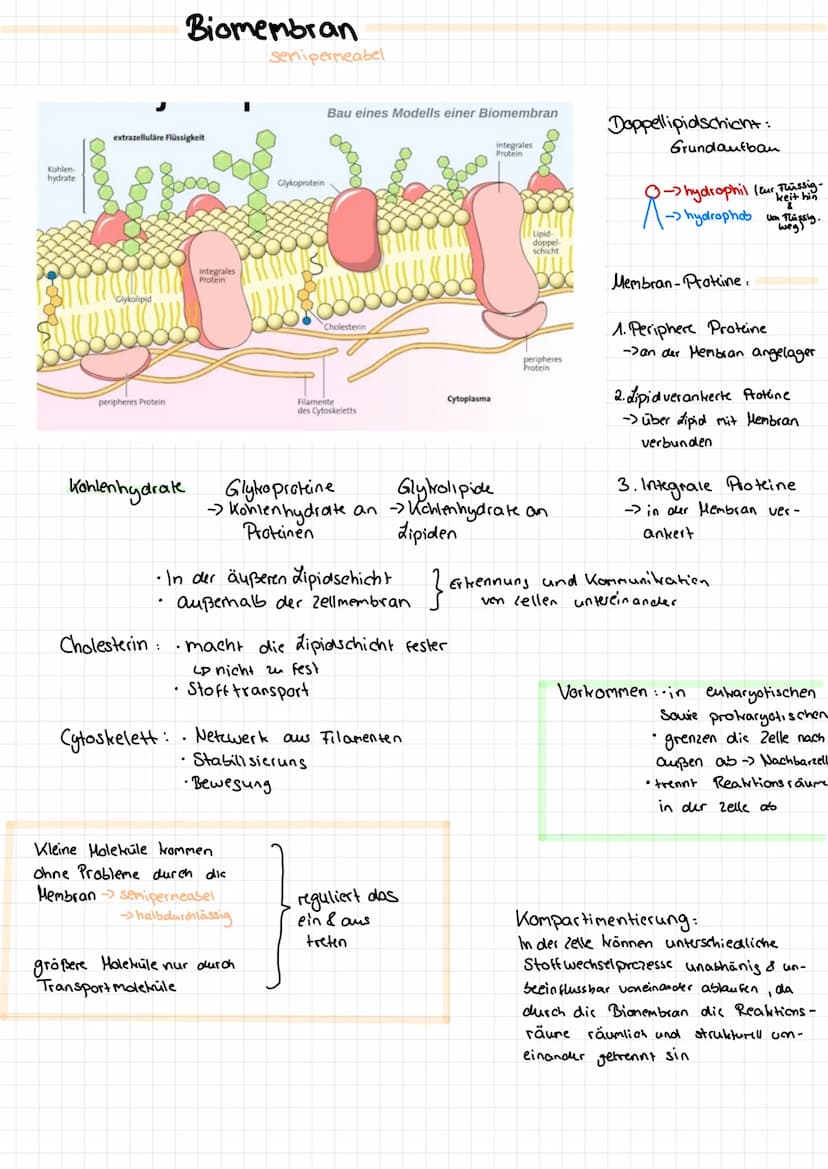 Biomembran
semipermeabel
Bau eines Modells einer Biomembran
extrazelluläre Flüssigkeit
Kohlen-
hydrate
Glykoprotein
integrales
Protein
Lipid-
doppel-
schicht
integrales
Protein
Glykolipid
Cholesterin
peripheres
Protein
peripheres Protein
Filamente
des Cytoskeletts
Cytoplasma
Doppellipidschicht:
Grundaufbau
→ hydrophil (zur Flüssig-
keit hin
&
→ hydrophob von Flüssig.
weg)
Membran-Proteine:
1. Periphere Proteine
→ an der Membran angelager
2. Lipidverankerte Proteine
→ über Lipid mit Membran
verbunden
3. Integrale Proteine
→ in der Membran ver-
ankert
Kohlenhydrate Glykoproteine Glykolipide
→ Kohlenhydrate an → Kohlenhydrate an
Proteinen Lipiden
· In der äußeren Lipidschicht
· außerhalb der Zellmembran
} Erkennung und Kommunikation
von Zellen untereinander
Cholesterin: · macht die Lipidschicht fester
↳ nicht zu fest
· Stofftransport
Cytoskelett: · Netzwerk aus Filamenten
· Stabilisierung
· Bewegung
Vorkommen: · in eukaryotischen
sowie prokaryotischen
· grenzen die Zelle nach
außen ab → Nachbarzell
· trennt Reaktionsräume
in der Zelle ab
Kleine Moleküle kommen
ohne Probleme durch die
Membran → semipermeabel
→ halbdurchlässig
größere Moleküle nur durch
Transportmoleküle
reguliert das
ein & aus
treten
Kompartimentierung:
In der Zelle können unterschiedliche
Stoffwechselprozesse unabhänig & un-
beeinflussbar voneinander ablaufen, da
durch die Biomembran die Reaktions-
räume räumlich und strukturell von-
einander getrennt sin